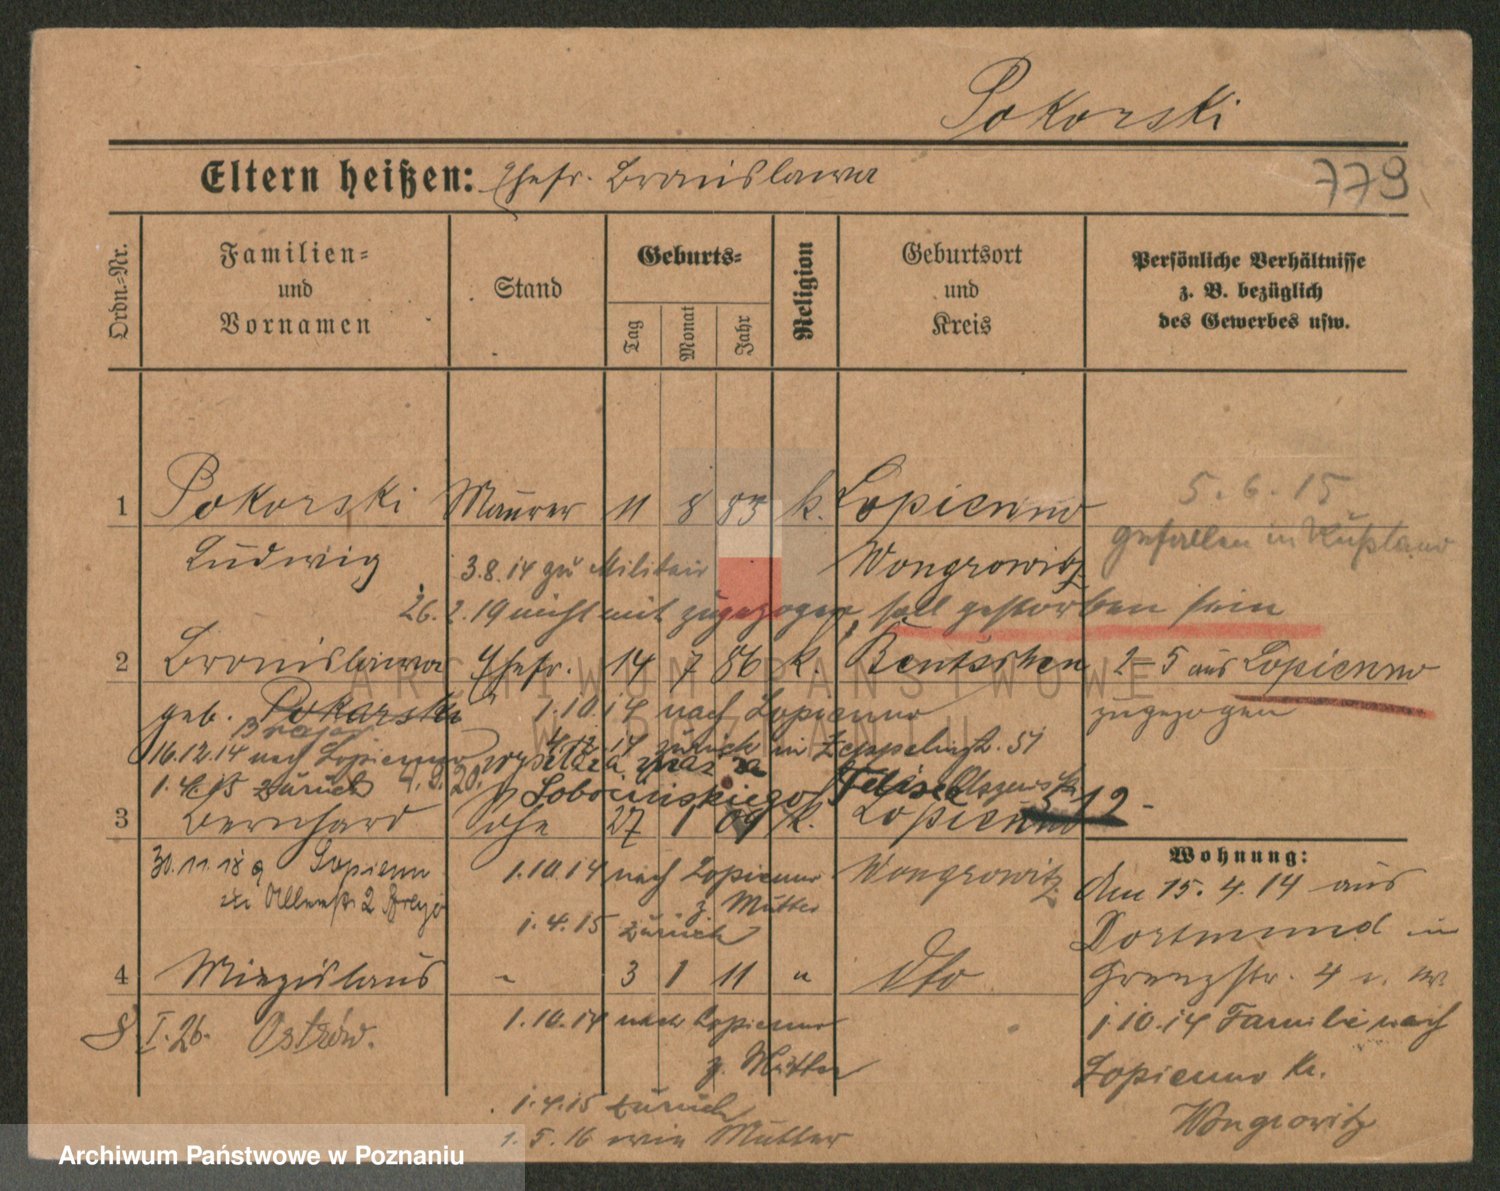 Pokorski
Eltern heißen: Ehefr. Bronislawa
779
Ordn.-Nr.
Familien-
und
Vornamen
Stand
Geburts-
Tag
Monat
Jahr
Religion
Geburtsort
und
Kreis
Persönliche Verhältnisse
z. B. bezüglich
des Gewerbes usw.
1 Pokorski Maurer 11 8 83 k. Lopienno
5.6.15
gefallen in Rußland
Ludwig Wongrowitz
3.8.14 zu Militair
26.2.19 nicht mit zugezogen, soll gestorben sein
2 Bronislawa Ehefr. 14 7 86 k. Bentschen 2=5 aus Lopienno
zugezogen
geb. Pokorski 1.10.14 nach Lopienno
4.12.14 zurück in Zeppelinstr. 51
16.12.14 nach Lopienno
1.4.15 zurück 4.9.20.
Sobocińskiego Felisa 12
3 Bernhard Sohn 27 1 09 k. Lopienno
Wohnung:
30.11.18 Lopienno
1.10.14 nach Lopienno Wongrowitz
z. Mutter
1.4.15 zurück
den 15.4.14 aus
Dortmund in
Grenzstr. 4
1.10.14 Familie nach
Lopienno Kr.
Wongrowitz
4 Miezislaus - 3 1 11 " dto
I.26. Ostrów.
1.10.14 nach Lopienno
z. Mutter
1.4.15 zurück
1.5.16 wie Mutter
ARCHIWUM PAŃSTWOWE
W POZNANIU
Archiwum Państwowe w Poznaniu